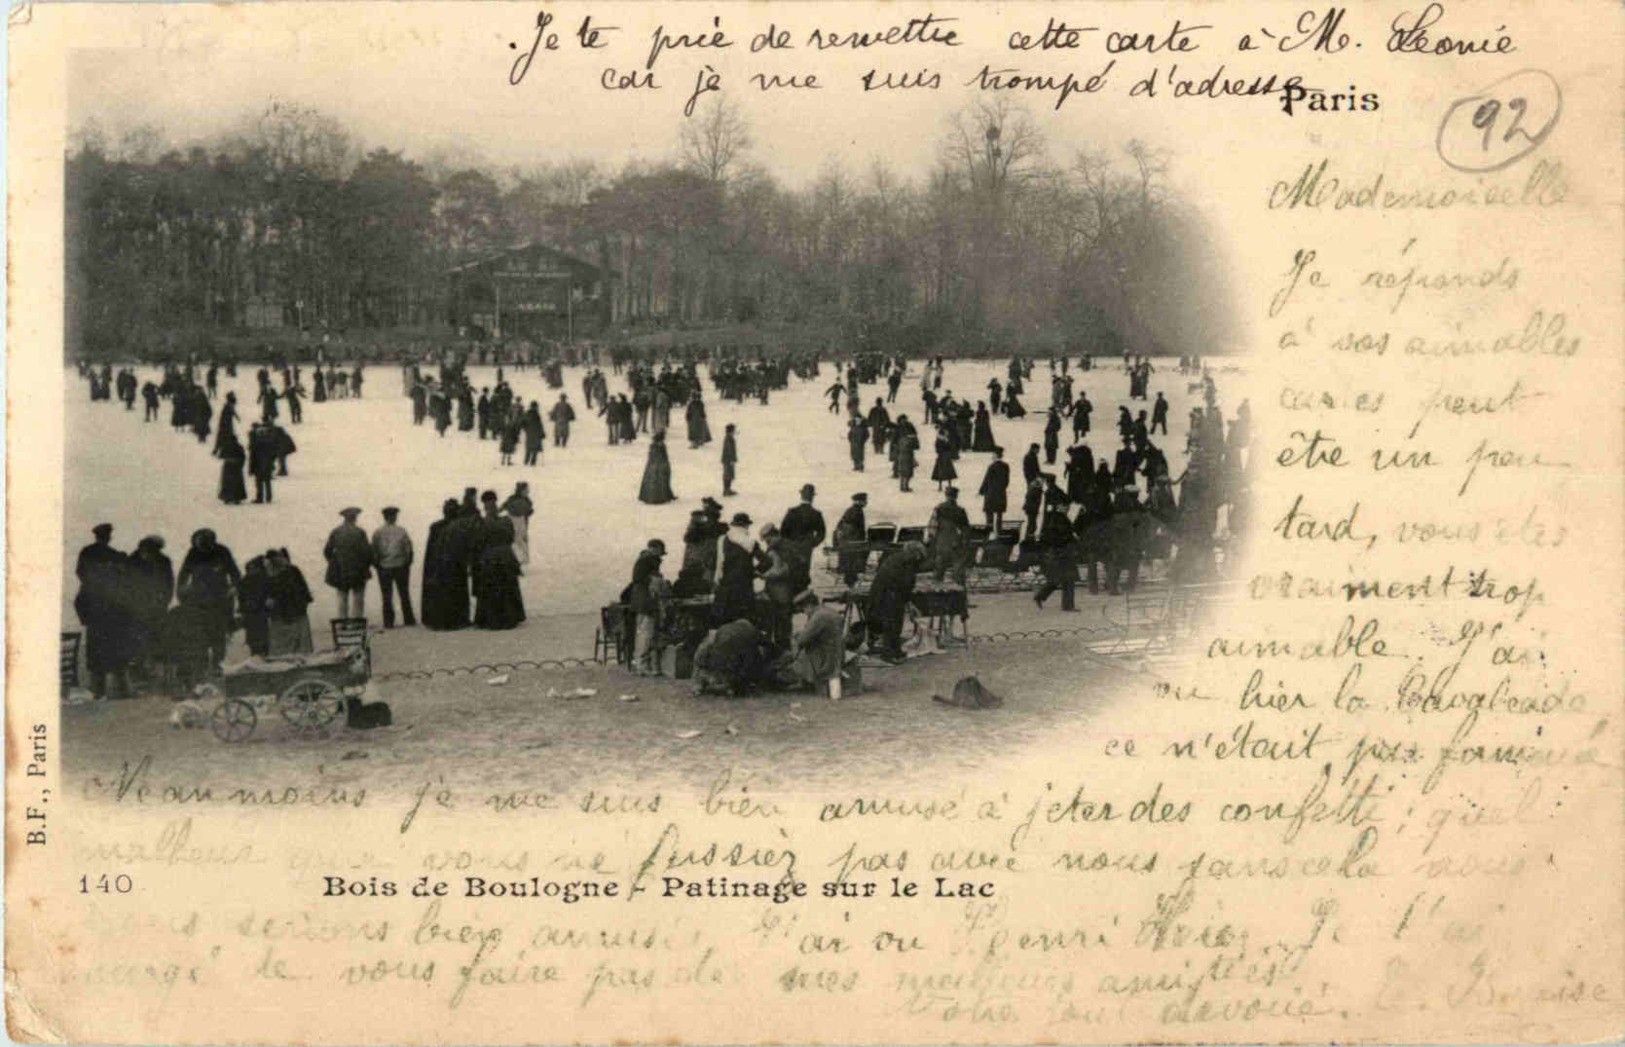 .Je te prie de remettre cette carte à M. Léonie
car je me suis trompé d'adresse
Paris
92
Mademoiselle
Je réponds
à vos aimables
cartes peut
être un peu
tard, vous êtes
vraiment trop
aimable. J'ai
vu hier la Cavalcade
ce n'était pas fameux
Néanmoins je me suis bien amusé à jeter des confetti ; quel
malheur que vous ne fussiez pas avec nous sans cela nous
140
Bois de Boulogne - Patinage sur le Lac
nous serions bien amusés J'ai vu Henri Je l'ai
chargé de vous faire pas de mes meilleurs amitiés
Votre tout dévoué.
B.F., Paris